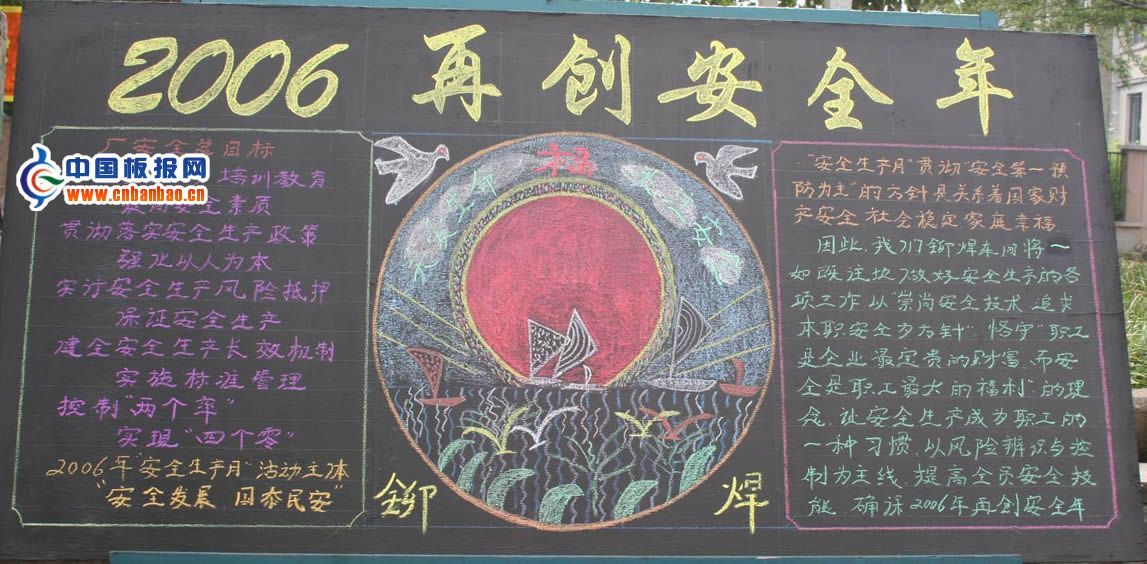 2006 再创安全年
厂安全总目标
中国板报网
www.cnbanbao.cn
培训教育
安全素质
贯彻落实安全生产政策
强化以人为本
实行安全生产风险抵押
保证安全生产
建全安全生产长效机制
实施标准管理
控制"两个率"
实现"四个零"
2006年"安全生产月"活动主体
"安全发展、国泰民安"
福
铆 焊
"安全生产月"贯彻"安全第一预
防为主"的方针是关系着国家财
产安全 社会稳定家庭幸福
因此,我们铆焊车间将一
如既往地做好安全生产的各
项工作 以"崇尚安全技术 追求
本职安全为方针" 恪守"职工
是企业最宝贵的财富,而安
全是职工最大的福利"的理
念,让安全生产成为职工的
一种习惯,以风险辨识与控
制为主线,提高全员安全技
能 确保2006年再创安全年